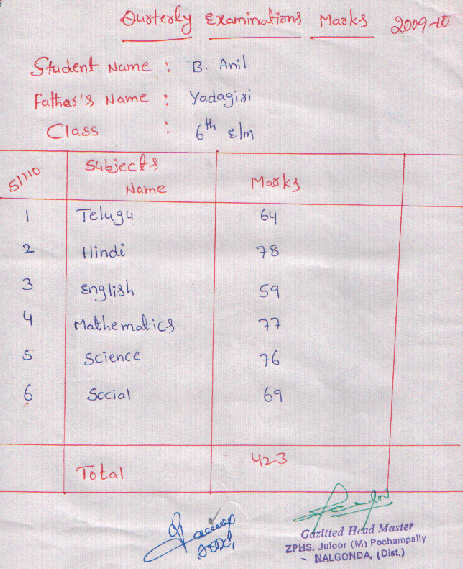 Qurterly Examinations Marks 2009-10
Student Name : B. Anil
Father's Name : Yadagiri
Class : 6th E/m
Sl no Subjects Name Marks
1 Telugu 64
2 Hindi 78
3 English 59
4 Mathematics 77
5 Science 76
6 Social 69
Total 423
Gazitted Head Master
ZPHS. Juloor (M) Pochampally
NALGONDA, (Dist.)